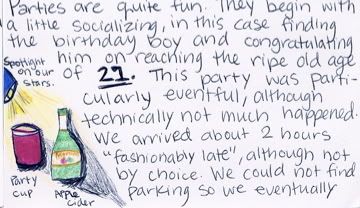 Parties are quite fun. They begin with
a little socializing, in this case finding
the birthday boy and congratulating
him on reaching the ripe old age
of 21. This party was parti-
cularly eventful, although
technically not much happened.
We arrived about 2 hours
"fashionably late", although not
by choice. We could not find
parking so we eventually
Spotlight
on our
stars.
Party
cup
Apple
cider